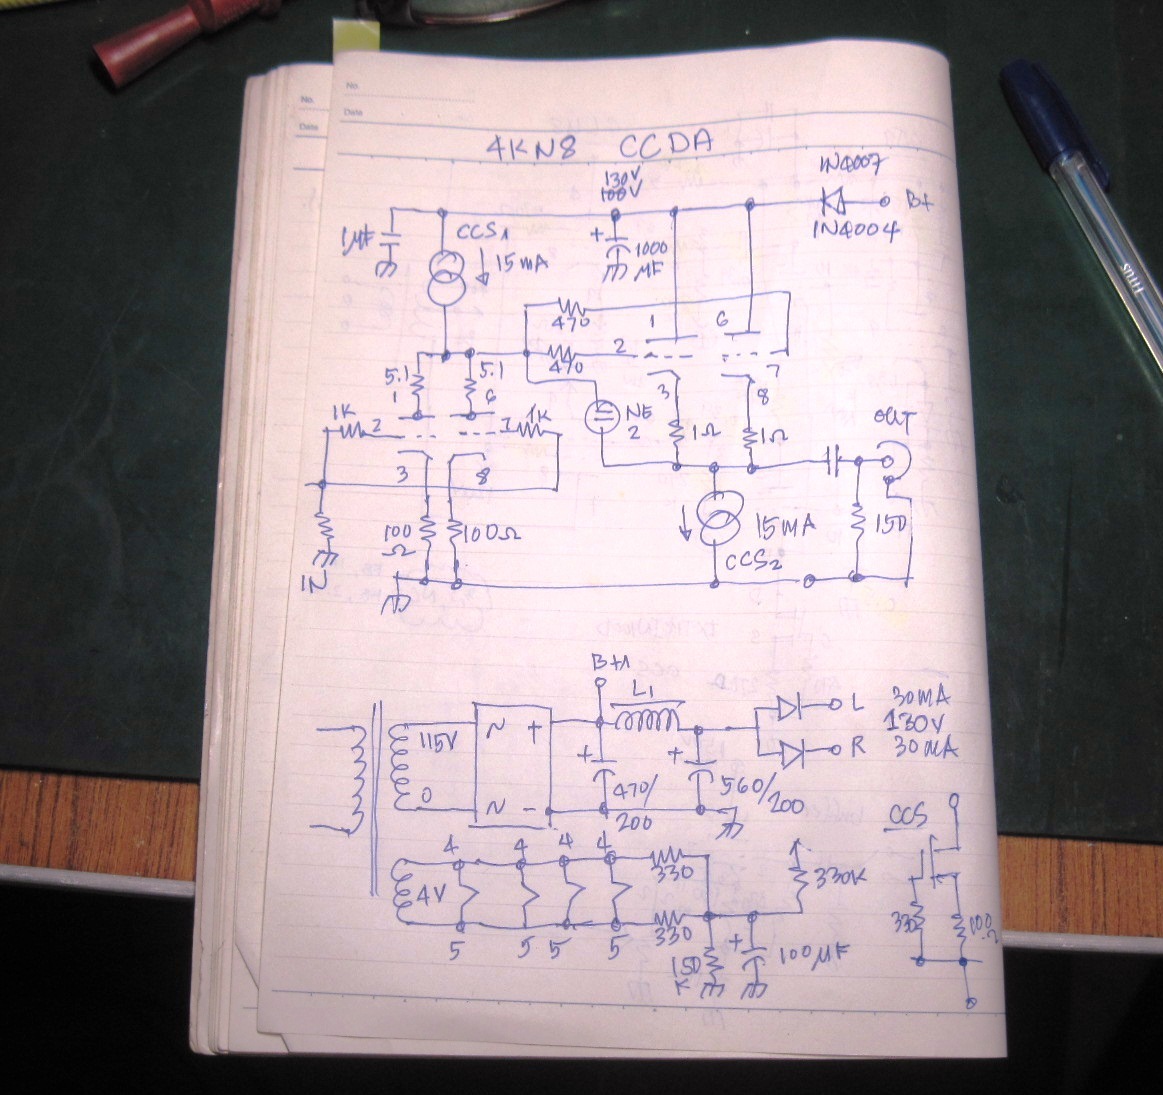 No.
Date
No.
Date
4KN8 CCDA
130V
100V
1N4007
B+
1N4004
1µF
CCS1
15mA
+
1000
µF
470
1
6
2
470
7
5.1
5.1
1
6
3
8
NE
2
1K
2
7
1K
1Ω
1Ω
OUT
3
8
100
Ω
100Ω
15mA
CCS2
150
B+1
L1
115V
~
+
0
~
-
+
470/
200
+
560/
200
L
30mA
130V
R
30mA
CCS
4
4
4
4
4V
330
330
5
5
5
5
330K
150
K
+
100µF
330
100
Ω